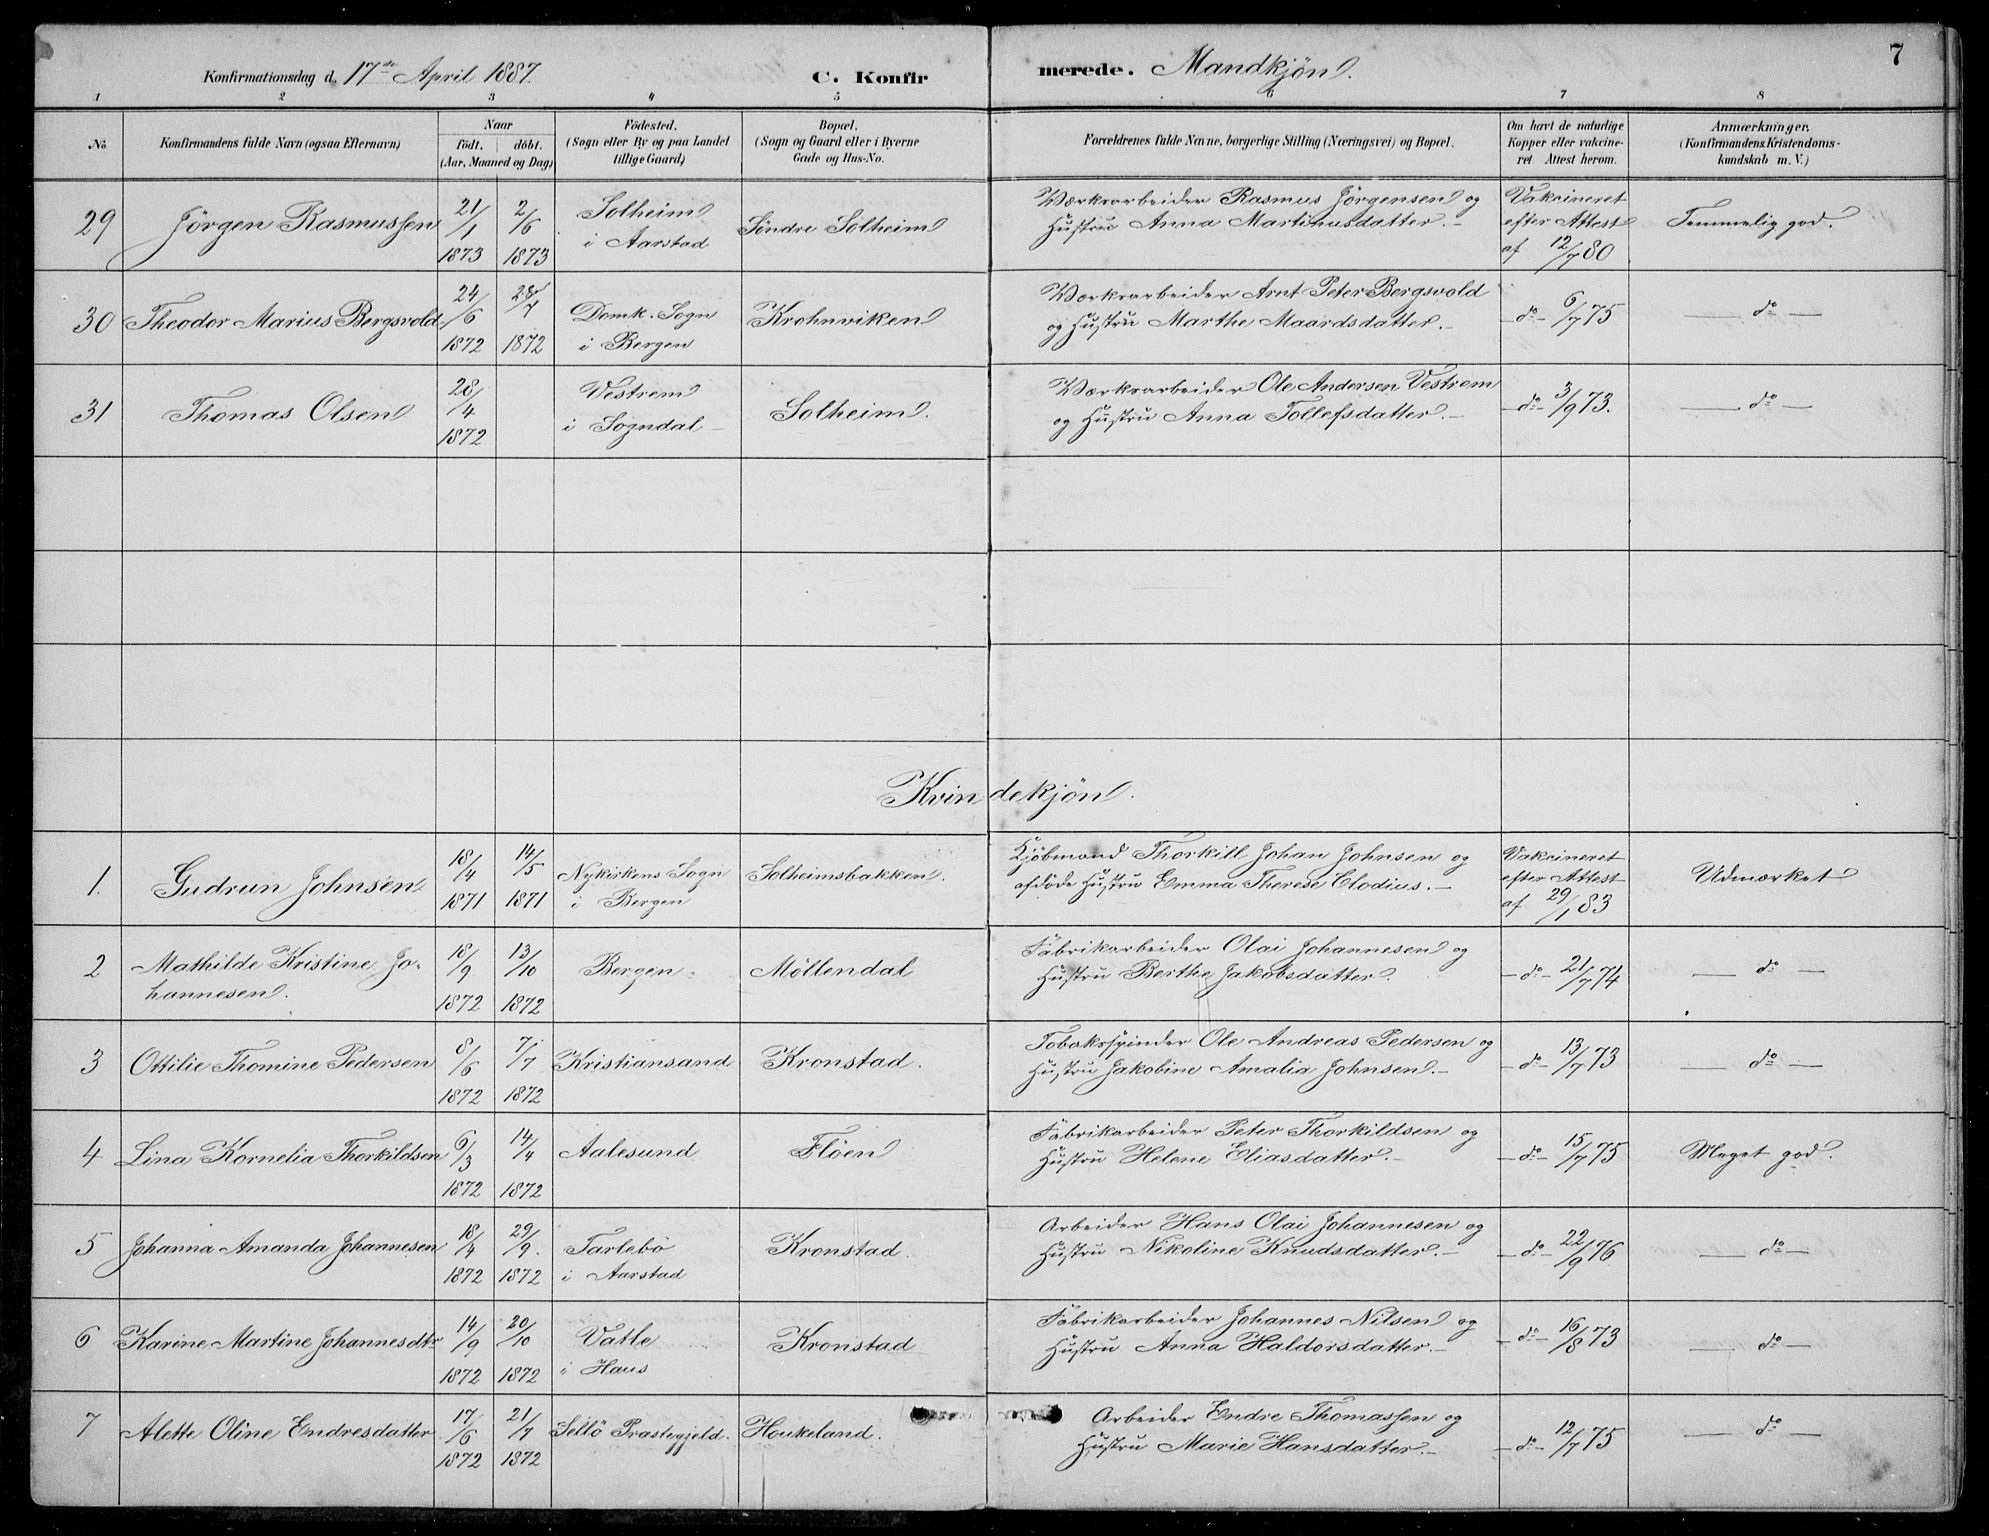 7
Konfirmationsdag d. 17de April 1887. C. Konfirmerede. Mandkjøn.
1 2 3 4 5 6 7 8
No Konfirmandens fulde Navn (ogsaa Efternavn) Naar födt. döbt. (Aar, Maaned og Dag) Födested. (Sogn eller By og paa Landet tillige Gaard) Bopæl. (Sogn og Gaard eller i Byerne Gade og Hus-No. Forældrenes fulde Navne, borgerlige Stilling (Næringsvei) og Bopæl. Om havt de naturlige Kopper eller vakcineret Attest herom. Anmærkninger. (Konfirmandens Kristendomskundskab m. V.)
29 Jörgen Rasmussen 21/1 1873 2/6 1873 Solheim i Aarstad Söndre Solheim Værksarbeider Rasmus Jörgensen og Hustru Anna Martinusdatter. Vakcineret efter Attest af 12/7 80 Temmelig god.
30 Theodor Marius Bergsvold. 24/6 1872 28/7 1872 Domk. Sogn i Bergen Krohnviken Værksarbeider Arnt Peter Bergsvold og Hustru Marthe Maardsdatter. – do – 6/7 75 – do –
31 Thomas Olsen 28/4 1872 Vestrem i Sogndal Solheim. Værksarbeider Ole Andersen Vestrem og Hustru Anna Tollefsdatter. – do – 3/9 73. – do –
Kvindekjøn.
1. Gudrun Johnsen 18/4 1871 14/5 1871 Nykirkens Sogn i Bergen Solheimsbakken. Kjöbmand Thorkill Johan Johnsen og afdöde Hustru Emma Therese Clodius. – Vakcineret efter Attest af 29/1 83 Udmærket
2 Mathilde Kristine Johannesen. 18/9 1872 13/10 1872 Bergen Møllendal Fabrikarbeider Olai Johannesen og Hustru Berthe Jakobsdatter. – do – 21/7 74 – do –
3 Ottilie Thomine Pedersen 8/6 1872 7/7 1872 Kristiansand Kronstad. Tobakspinder Ole Andreas Pedersen og Hustru Jakobine Amalia Johnsen. – – do – 13/7 73 – do –
4 Lina Kornelia Thorkildsen 6/3 1872 14/4 1872 Aalesund Fløen Fabrikarbeider Peter Thorkildsen og Hustru Helene Eliasdatter. – – do – 15/7 75 Meget god.
5 Johanna Amanda Johannesen 18/4 1872 29/9. 1872 Tarlebö i Aarstad Kronstad. Arbeider Hans Olai Johannesen og Hustru Nikoline Knudsdatter. – – do – 22/9 76 – do –
6 Karine Martine Johannesdtr 14/9 1872 20/10 1872 Vatle i Haus Kronstad Fabrikarbeider Johannes Nilsen og Hustru Anna Haldorsdatter. – – do – 16/8 73 – do –
7 Alette Oline Endresdatter 17/6 1872 21/7 1872 Sellö Prastegjeld. Houkeland. Arbeider Endre Thomassen og Hustru Marie Hansdatter. – – do – 12/7 75 – do –